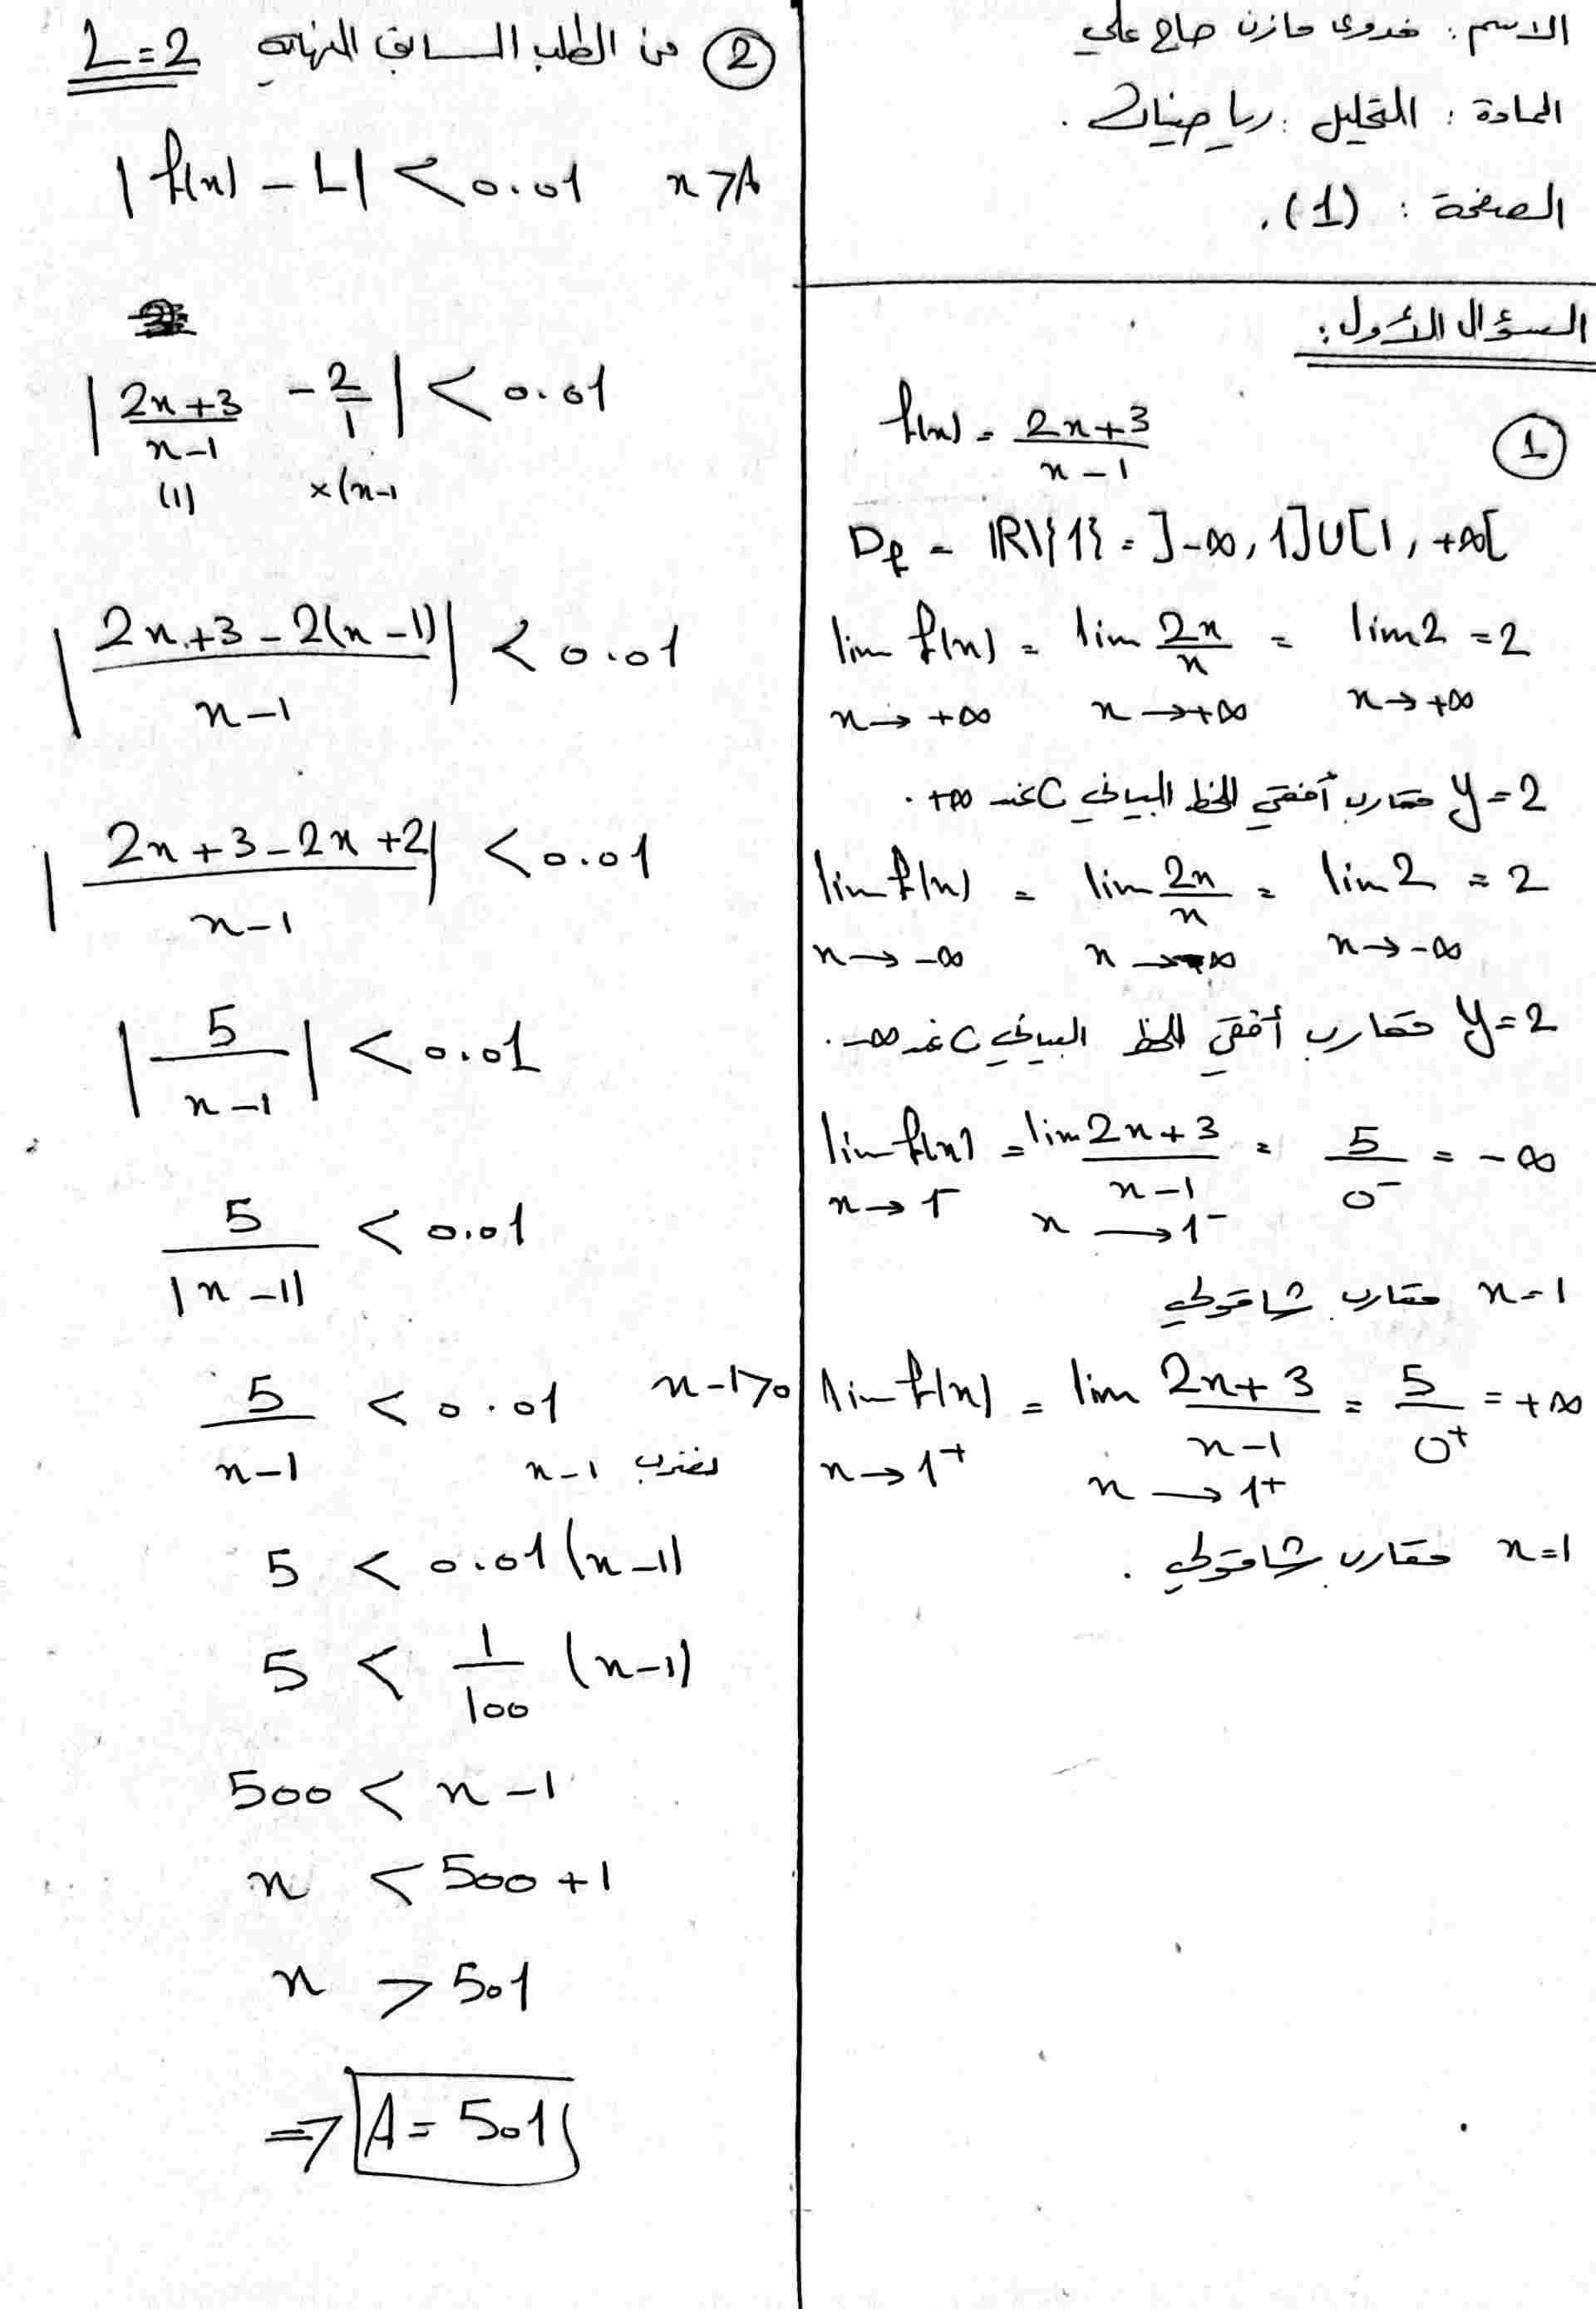 الاسم : فدوى مازن حاج علي
المادة : التحليل : رياضيات .
الصفحة : (1) .
السؤال الأول :
① f(x) = (2x+3)/(x-1)
Df = IR\{1} = ]-∞, 1]U[1, +∞[
lim f(x) = lim 2x/x = lim 2 = 2
x→+∞ x→+∞ x→+∞
y=2 مقارب أفقي للخط البياني C عند +∞ .
lim f(x) = lim 2x/x = lim 2 = 2
x→-∞ x→-∞ x→-∞
y=2 مقارب أفقي للخط البياني C عند -∞ .
lim f(x) = lim (2x+3)/(x-1) = 5/0⁻ = -∞
x→1⁻ x→1⁻
x=1 مقارب شاقولي
lim f(x) = lim (2x+3)/(x-1) = 5/0⁺ = +∞
x→1⁺ x→1⁺
x=1 مقارب شاقولي .
② من الطلب السابق النهاية L=2
|f(x) - L| < 0.01 x>A
|(2x+3)/(x-1) - 2/1| < 0.01
(1) ×(x-1
|(2x+3-2(x-1))/(x-1)| < 0.01
|(2x+3-2x+2)/(x-1)| < 0.01
|5/(x-1)| < 0.01
5/|x-1| < 0.01
5/(x-1) < 0.01 x-1>0
نضرب x-1
5 < 0.01(x-1)
5 < 1/100 (x-1)
500 < x-1
x < 500+1
x > 501
⇒ A = 501